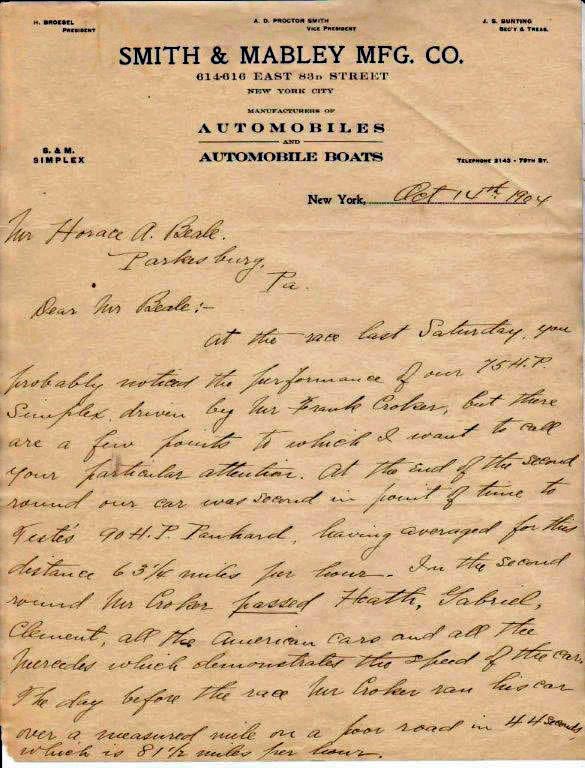 H. BROESEL
PRESIDENT
A. D. PROCTOR SMITH
VICE PRESIDENT
J. S. BUNTING
SEC'Y & TREAS.
SMITH & MABLEY MFG. CO.
614-616 EAST 83D STREET
NEW YORK CITY
MANUFACTURERS OF
AUTOMOBILES
AND
AUTOMOBILE BOATS
S. & M.
SIMPLEX
TELEPHONE 2143 - 79TH ST.
New York, Oct 14th 1904
Mr Horace A. Beale.
Parkesburg,
Pa.
Dear Mr Beale:-
At the race last Saturday, you
probably noticed the performance of our 75 H.P.
Simplex, driven by Mr Frank Croker, but there
are a few points to which I want to call
your particular attention. At the end of the second
round our car was second in point of time to
90 H.P. Panhard, having averaged for this
distance 63 1/4 miles per hour. In the second
round Mr Croker passed Heath, Gabriel,
Clement, all the American cars and all the
Mercedes which demonstrates the speed of the car.
The day before the race Mr Croker ran his car
over a measured mile on a poor road in 44 seconds
which is 81 1/2 miles per hour.